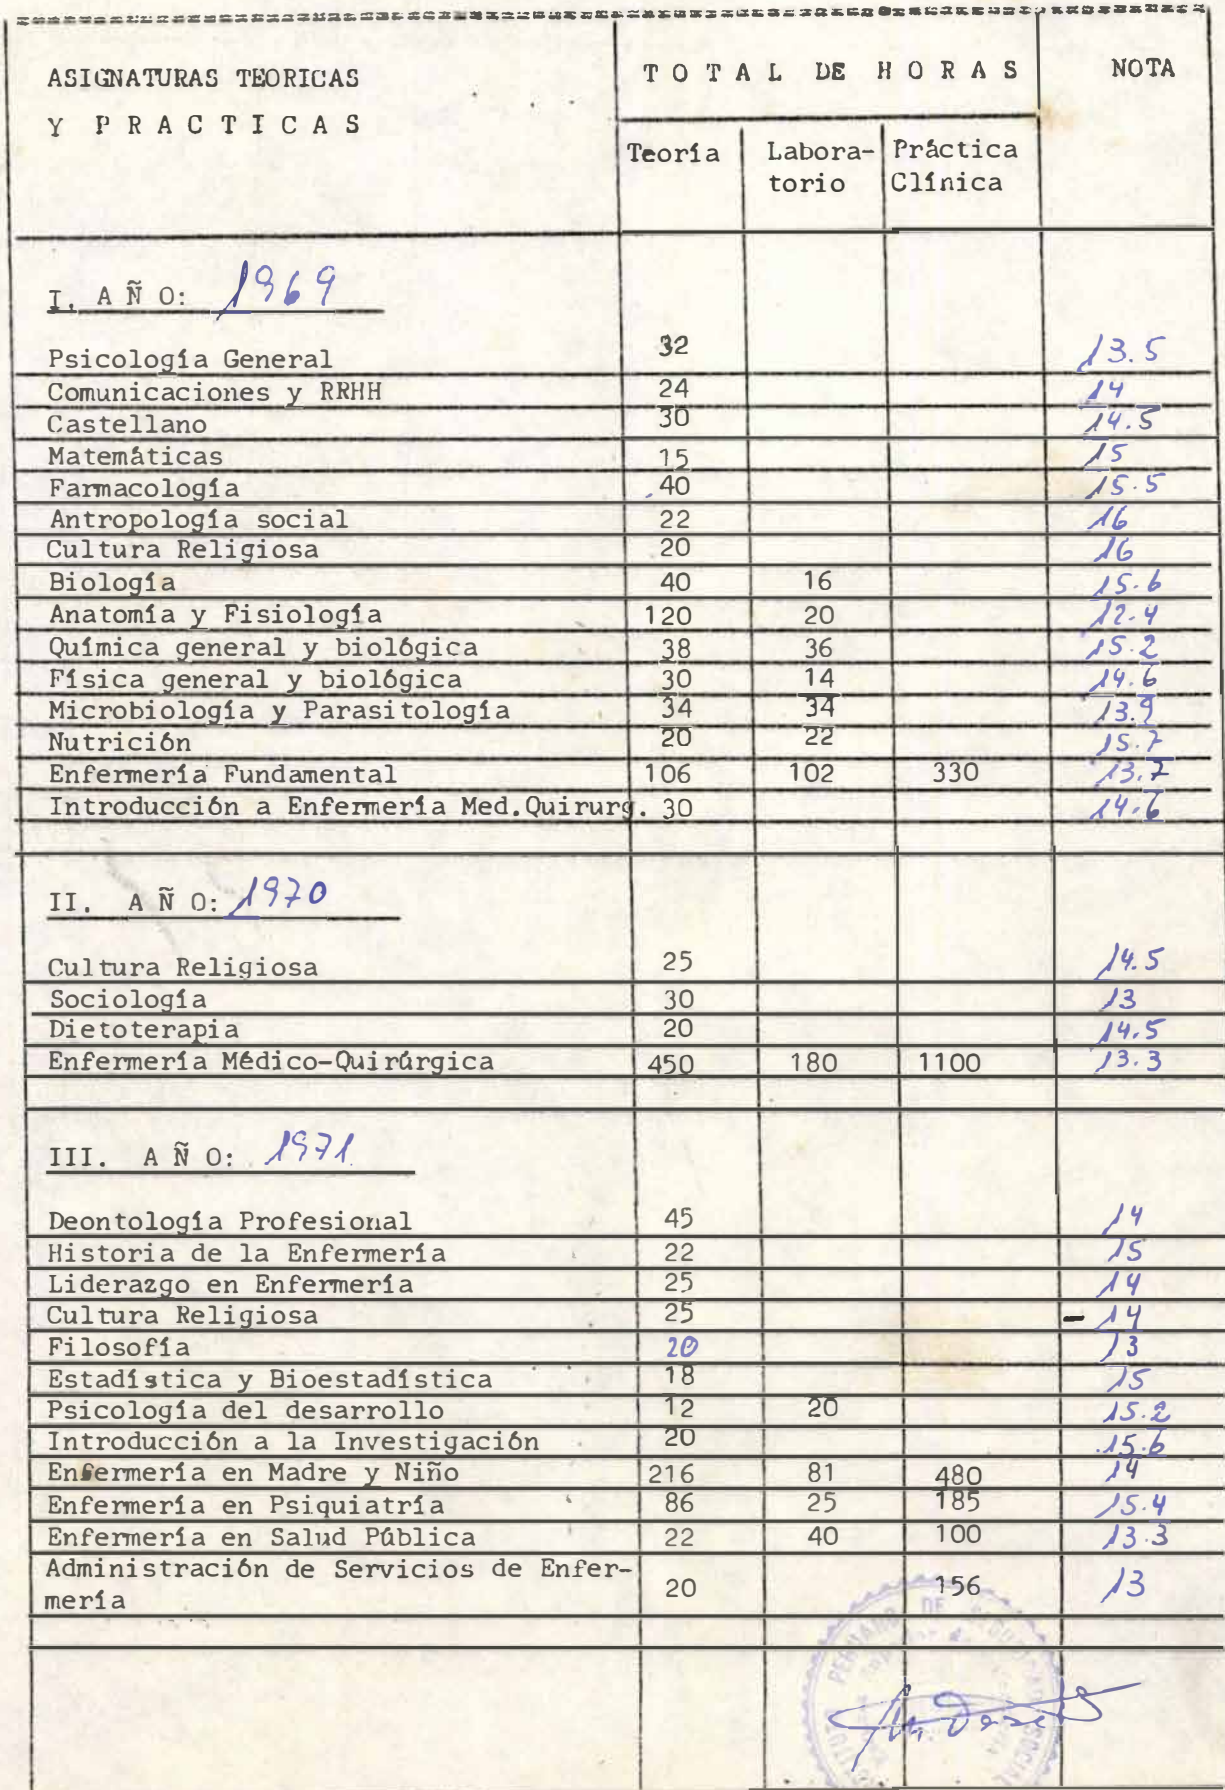 ASIGNATURAS TEORICAS
Y PRACTICAS
TOTAL DE HORAS
NOTA
Teoría
Labora-torio
Práctica Clínica
I. AÑO: 1969
Psicología General 32 13.5
Comunicaciones y RRHH 24 14
Castellano 30 14.5
Matemáticas 15 15
Farmacología 40 15.5
Antropología social 22 16
Cultura Religiosa 20 16
Biología 40 16 15.6
Anatomía y Fisiología 120 20 12.4
Química general y biológica 38 36 15.2
Física general y biológica 30 14 14.6
Microbiología y Parasitología 34 34 13.9
Nutrición 20 22 15.7
Enfermería Fundamental 106 102 330 13.7
Introducción a Enfermería Med.Quirurg. 30 14.6
II. AÑO: 1970
Cultura Religiosa 25 14.5
Sociología 30 13
Dietoterapia 20 14.5
Enfermería Médico-Quirúrgica 450 180 1100 13.3
III. AÑO: 1971
Deontología Profesional 45 14
Historia de la Enfermería 22 15
Liderazgo en Enfermería 25 14
Cultura Religiosa 25 - 14
Filosofía 20 13
Estadística y Bioestadística 18 15
Psicología del desarrollo 12 20 15.2
Introducción a la Investigación 20 15.6
Enfermería en Madre y Niño 216 81 480 14
Enfermería en Psiquiatría 86 25 185 15.4
Enfermería en Salud Pública 22 40 100 13.3
Administración de Servicios de Enfer-
mería 20 156 13
PERUANO DE
SOCIAL